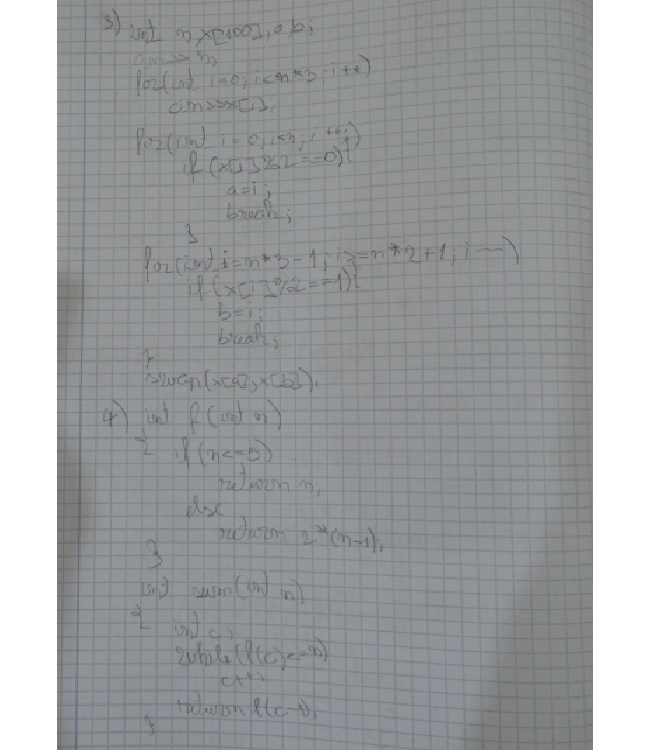 3) int n, x[100], a, b;
cin>>n;
for(int i=0; i<n*3; i++)
cin>>x[i];
for(int i=0; i<n; i++)
if (x[i]%2==0){
a=i;
break;
}
for(int i=n*3-1; i>=n*2+1; i--)
if(x[i]%2==1){
b=i;
break;
}
swap(x[a],x[b]);
4) int f(int n)
{ if(n<=5)
return n;
else
return 2*(n-1);
}
int (int n)
{ int c;
while(f(c)<=n)
c++;
return f(c-1);
}